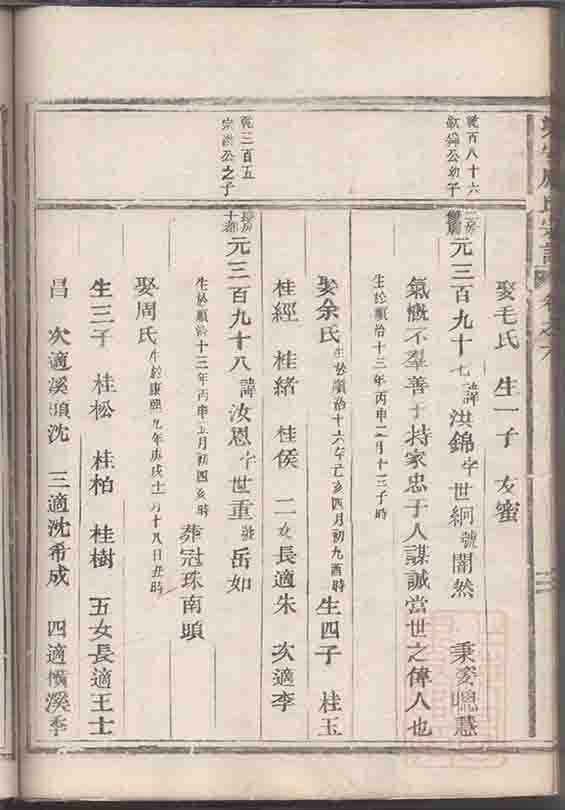 周氏宗譜 卷之六
娶毛氏 生一子 友蜜
乾百八十六
公幼子
元三百九十七諱洪錦字世絅號闇然 秉姿聰慧
氣概不羣善于持家忠于人謀誠當世之偉人也
生於順治十三年丙申二月十三子時
娶余氏生於順治十六年己亥四月初九酉時生四子 桂玉
桂經 桂緒 桂侯 二女長適朱 次適李
乾三百五
宗洪公之子
元三百九十八諱汝恩字世重號岳如
生於順治十三年丙申五月初四亥時
葬冠珠南頭
娶周氏生於康熙九年庚戌十一月十八日丑時
生三子 桂松 桂柏 桂樹 五女長適王士
昌 次適溪頭沈 三適沈希成 四適橫溪李